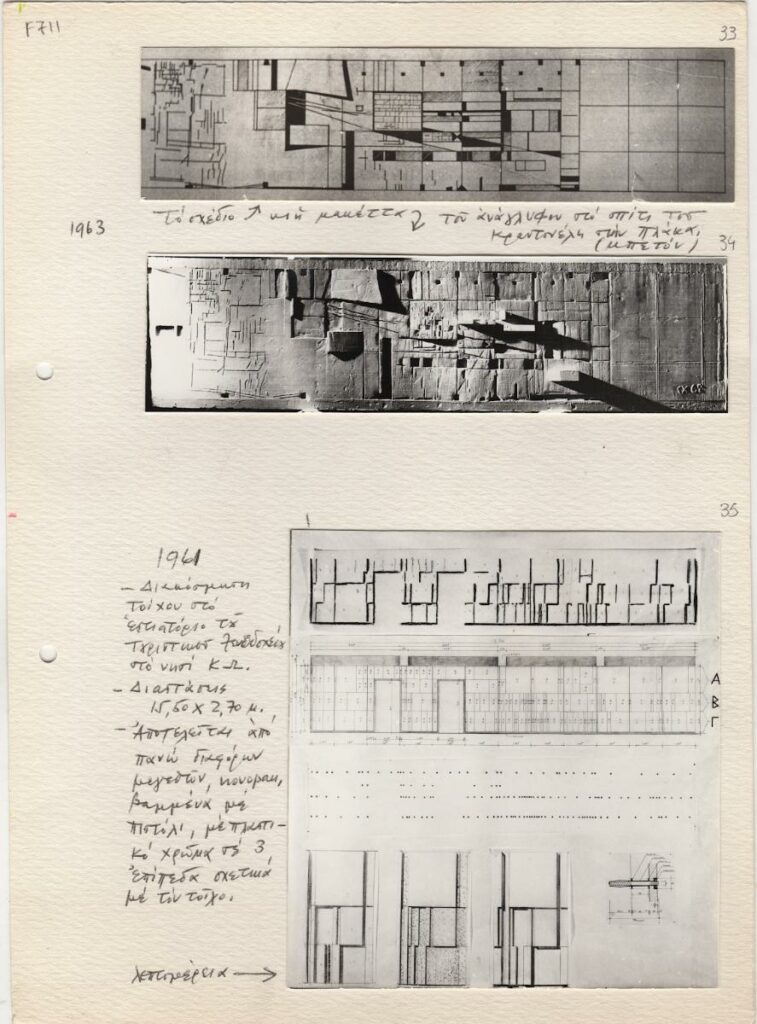 F711
33
Τό σχέδιο ↑ καί ἡ μακέττα ↓ τοῦ ἀνάγλυφου στό σπίτι τοῦ
1963
στήν Πλάκα,
(μπετόν)
34
35
1961
– Διακόσμηση
τοίχου στό
ἑστιατόριο τοῦ
τουριστικοῦ ξενοδοχείου
στό νησί Κ-Ω.
– Διαστάσεις
15,60 Χ 2,70 μ.
– Ἀποτελεῖται ἀπό
πανώ διαφόρων
μεγεθῶν,
βαμμένα μέ
πιστόλι, μέ πλαστι-
κό χρῶμα σέ 3
ἐπίπεδα σχετικά
μέ τόν τοῖχο.
Α
Β
Γ
λεπτομέρεια →